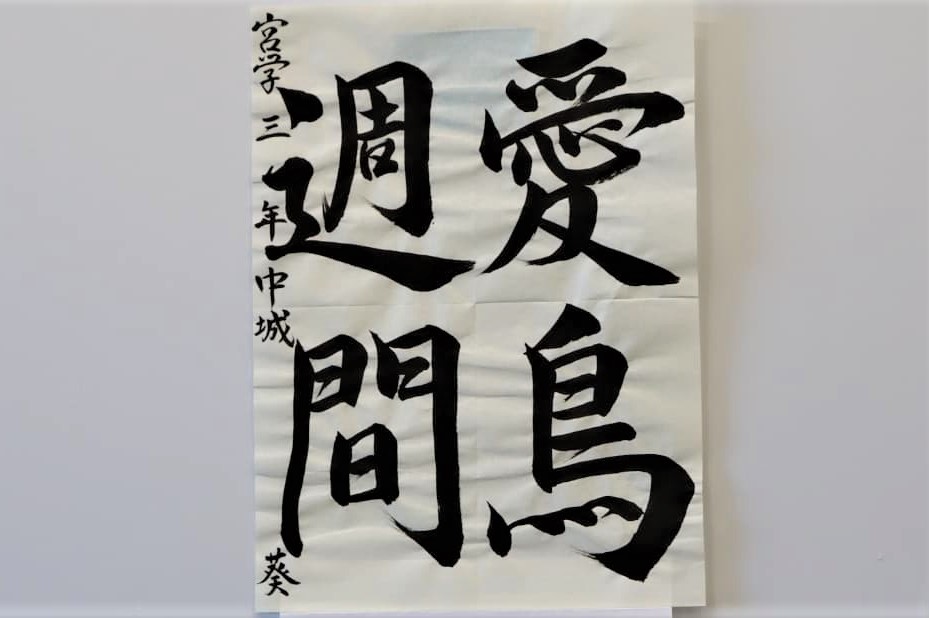 愛鳥
週間
宮学三年中城葵